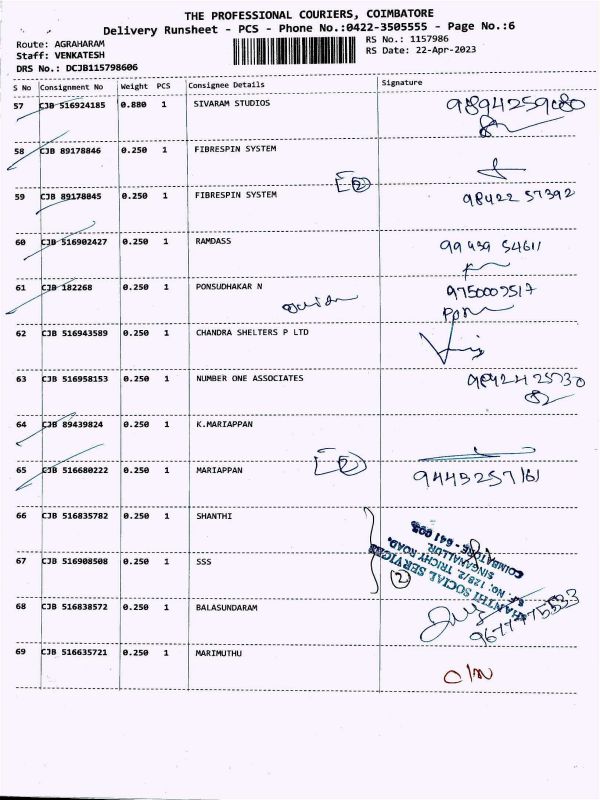 THE PROFESSIONAL COURIERS, COIMBATORE
Delivery Runsheet - PCS - Phone No.:0422-3505555 - Page No.:6
Route: AGRAHARAM
RS No.: 1157986
Staff: VENKATESH
RS Date: 22-Apr-2023
DRS No.: DCJB115798606
S No Consignment No Weight PCS Consignee Details Signature
57 CJB 516924185 0.880 1 SIVARAM STUDIOS 9894259080
58 CJB 89178846 0.250 1 FIBRESPIN SYSTEM
2
59 CJB 89178845 0.250 1 FIBRESPIN SYSTEM 98422 57392
60 CJB 516902427 0.250 1 RAMDASS 99439 54611
61 CJB 182268 0.250 1 PONSUDHAKAR N 9750009517
62 CJB 516943589 0.250 1 CHANDRA SHELTERS P LTD
63 CJB 516958153 0.250 1 NUMBER ONE ASSOCIATES 98424 25730
64 CJB 89439824 0.250 1 K.MARIAPPAN
2
65 CJB 516680222 0.250 1 MARIAPPAN 9443257161
66 CJB 516835782 0.250 1 SHANTHI
67 CJB 516908508 0.250 1 SSS
2
SHANTHI SOCIAL SERVICES
NO. 128/2, TRICHY ROAD,
SINGANALLUR,
COIMBATORE - 641 005
68 CJB 516838572 0.250 1 BALASUNDARAM 9677775533
69 CJB 516635721 0.250 1 MARIMUTHU O/N